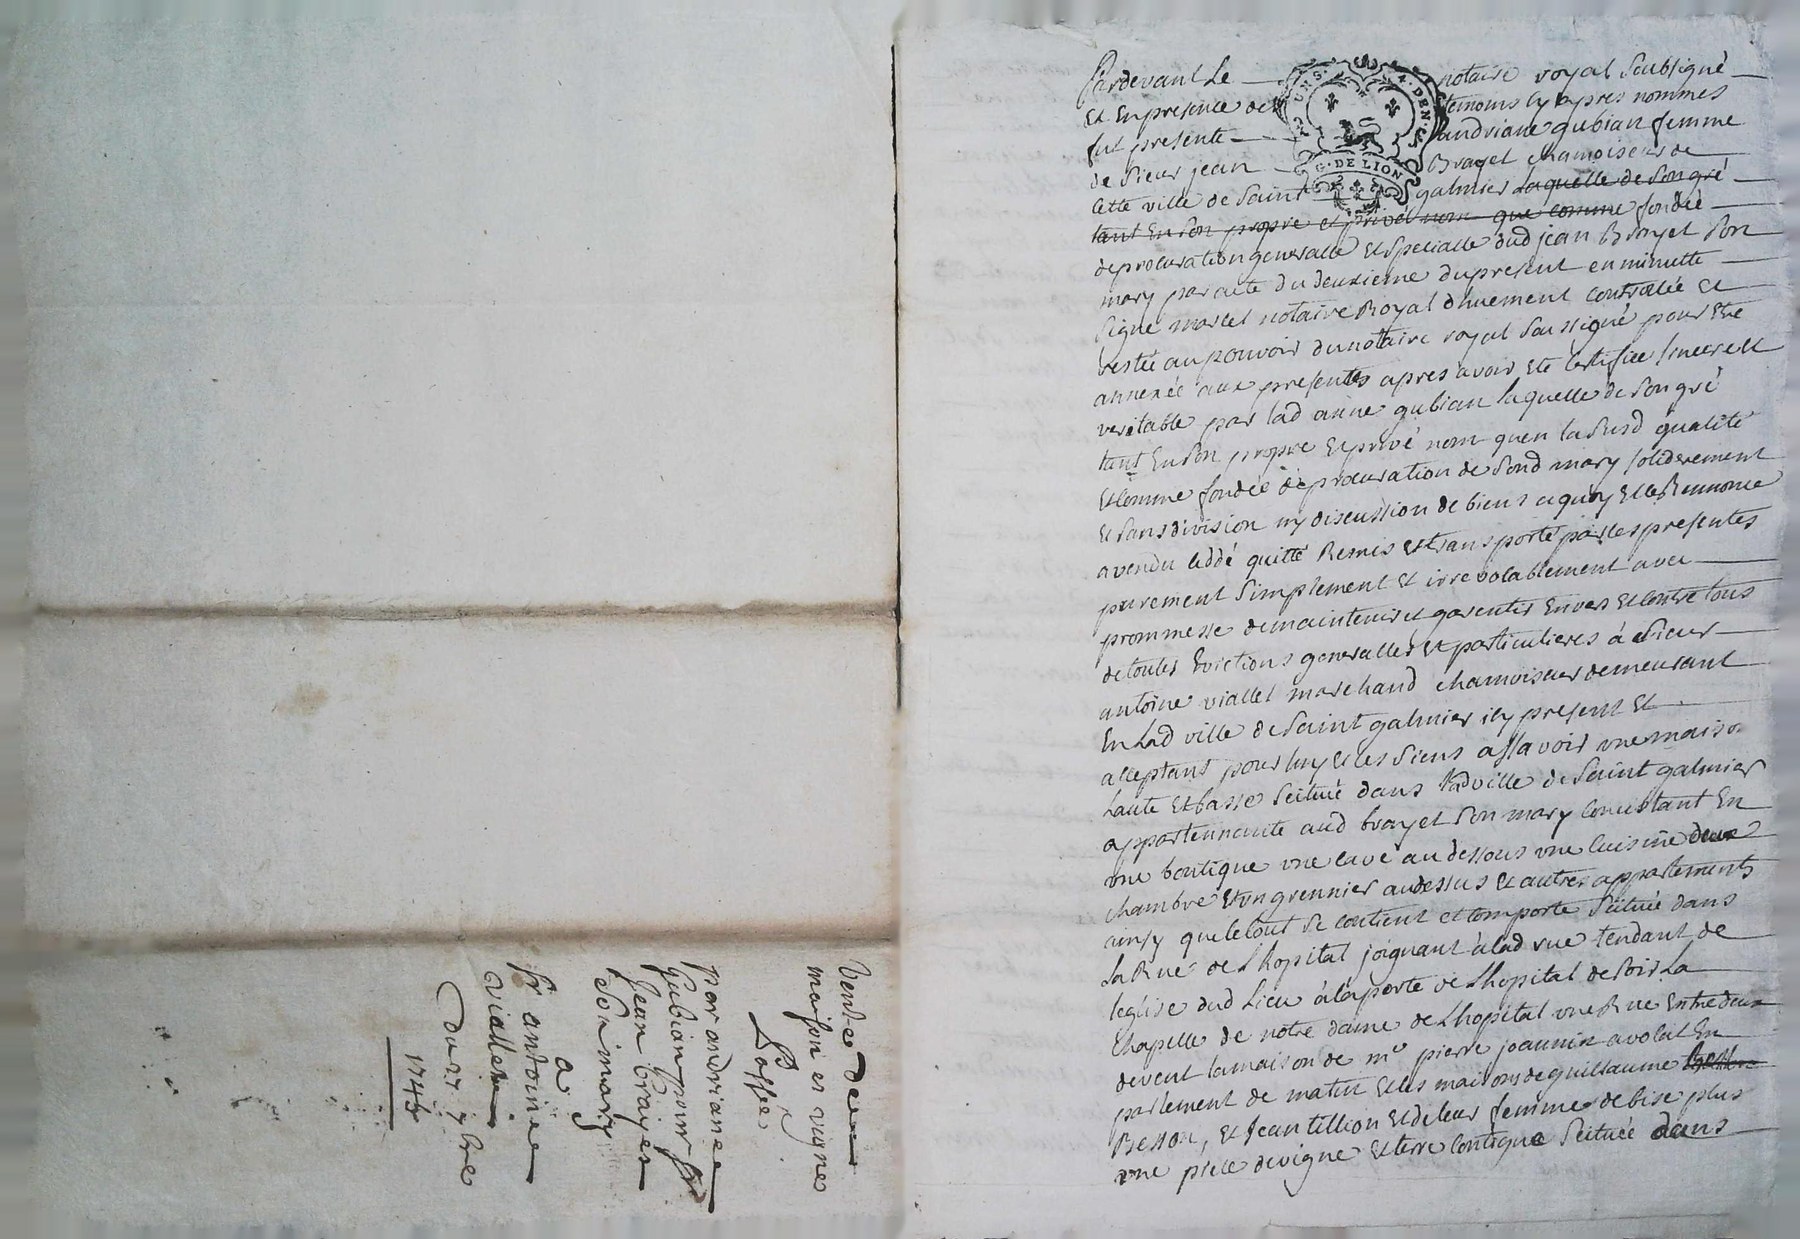 Vente de
maison et vigne
Loffe
par andriane
Gubian pour sr
Jean brayet
son mary
a
Sr antoine
viallet
Du 27 7bre
174
Pardevant Le notaire royal soubsigné
Et En presence des temoins cy apres nommes
fut presente andriane gubian femme
de sieur jean Brayet chamoiseur de
cette ville de saint galmier laquelle de son gré
tant En son propre et privé nom que comme fondée
de procuration generalle Et specialle dud jean Brayet son
mary par acte du deuxieme du present en minutte
signé marcel notaire Royal dhuement controllée Et
restée au pouvoir du notaire royal soussigné pour Etre
annexée aux presentes apres avoir Eté certifiée sincere Et
veritable par lad anne gubian laquelle de son gré
tant En son propre Et privé nom quen la susd qualité
Et comme fondée de procuration de sond mary soliderement
Et sans division ny discussion de biens a quoy Elle Renonce
a vendu ceddé quitté Remis Et transporté par les presentes
purement simplement Et irrevocablement avec
prommesse de maintenir et garentir Envers Et contre tous
de toutes Evictions generalles Et particulieres à sieur
antoine viallet marchand chamoiseur demeurant
En Lad ville de saint galmier icy present Et
acceptant pour luy Et les siens assavoir une maison
haute Et basse scituée dans lad ville de saint galmier
appartennante aud brayet son mary consistant En
une boutique une cave au dessous une cuisine deux
chambre Et un grennier audessus Et autres appartements
ainsy que le tout se contient et comporte scituée dans
La Rue de Lhopital joignant à lad rue tendant de
leglise dud Lieu à la porte de Lhopital de soir La
Chapelle de notre dame de Lhopital une Rue Entre deux
devent la maison de me pierre joannin avocat En
parlement de matin Et les maisons de guillaume
Besson, Et Jean tillion Et de leur femme de bise plus
une piece de vigne Et terre contigue scituée dans
G. DE LION